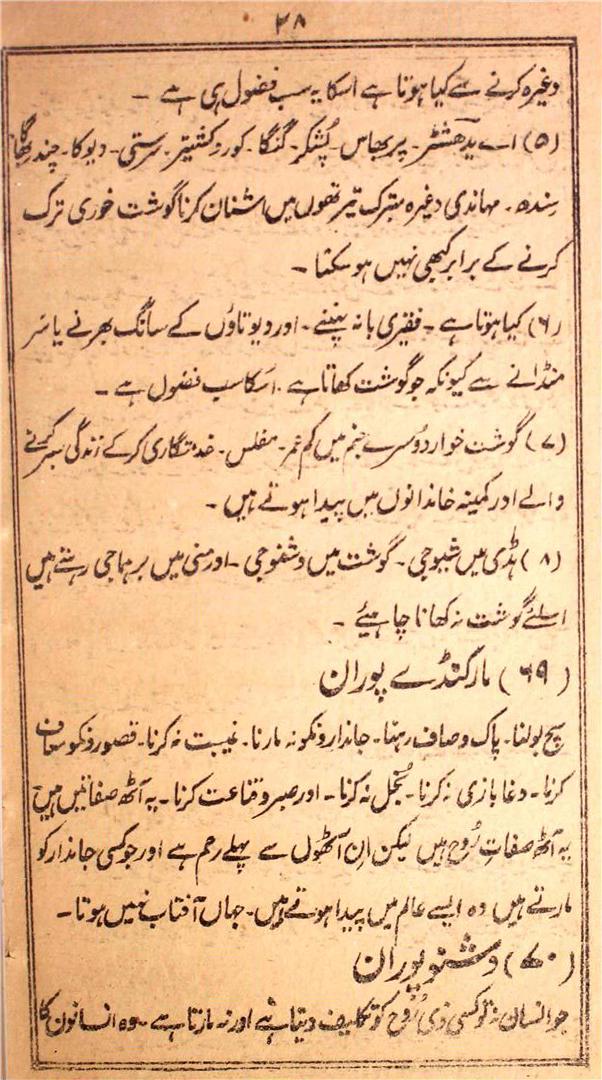 ۲۸
وغیرہ کرنے سے کیا ہوتا ہے اسکا یہ سب فضول ہی ہے ۔
(۵) اے یدھشٹر۔ پربھاس۔ پُشکر۔ گنگا۔ کوروکشیتر۔ سرستی۔ دیوکا۔ چندر بھاگا
سِندھ۔ مہاندی وغیرہ متبرک تیرتھوں میں اشنان کرنا گوشت خوری ترک
کرنے کے برابر کبھی نہیں ہو سکتا ۔
(۶) کیا ہوتا ہے ۔ فقیری بانہ پہننے ۔ اور دیوتاؤں کے سانگ بھرنے یا سر
منڈانے سے کیونکہ جو گوشت کھاتا ہے ۔ اُسکا سب فضول ہے ۔
(۷) گوشت خوار دُوسرے جنم میں کم عمر۔ مفلس۔ خدمتگاری کرکے زندگی بسر کرنے
والے اور کمینہ خاندانوں میں پیدا ہوتے ہیں ۔
(۸) ہڈی میں شیوجی ۔ گوشت میں وشنوجی ۔ اور منی میں برہماجی رہتے ہیں
اسلئے گوشت نہ کھانا چاہیئے ۔
(۶۹) مارکنڈے پوران
سچ بولنا۔ پاک و صاف رہنا۔ جاندارونکو نہ مارنا۔ غیبت نہ کرنا۔ قصورونکو معاف
کرنا۔ دغابازی نہ کرنا۔ بُخل نہ کرنا ۔ اور صبر و قناعت کرنا۔ یہ آٹھ صفاتیں ہیں
یہ آٹھ صفاتِ رُوح ہیں لیکن اِن آٹھوں سے پہلے رحم ہے اور جو کسی جاندار کو
مارتے ہیں وہ ایسے عالم میں پیدا ہوتے ہیں۔ جہاں آفتاب نہیں ہوتا۔
(۷۰) وشنو پوران
جو انسان نہ تو کسی ذی رُوح کو تکلیف دیتا ہے اور نہ مارتا ہے ۔ وہ انسانون کا